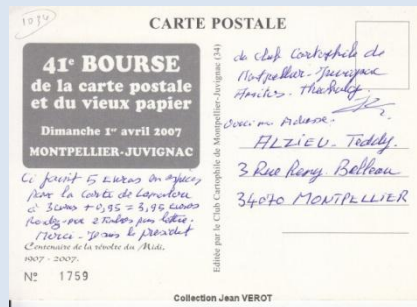 1034
CARTE POSTALE
41e BOURSE
de la carte postale
et du vieux papier
Dimanche 1er avril 2007
MONTPELLIER-JUVIGNAC
Ci joint 5 euros en espèces
pour la Carte de
à 3 euros + 0,95 = 3,95 euros
Rendez-moi 2 Timbres pour lettre.
Merci - Je suis le président
Centenaire de la révolte du Midi,
1907 - 2007.
N° 1759
Editée par le Club Cartophile de Montpellier-Juvignac (34)
du Club Cartophile de
Montpellier - Juvignac
Amitiés -
Voici mon Adresse.
ALZIEU Teddy.
3 Rue Remy Belleau
34070 MONTPELLIER
Collection Jean VEROT